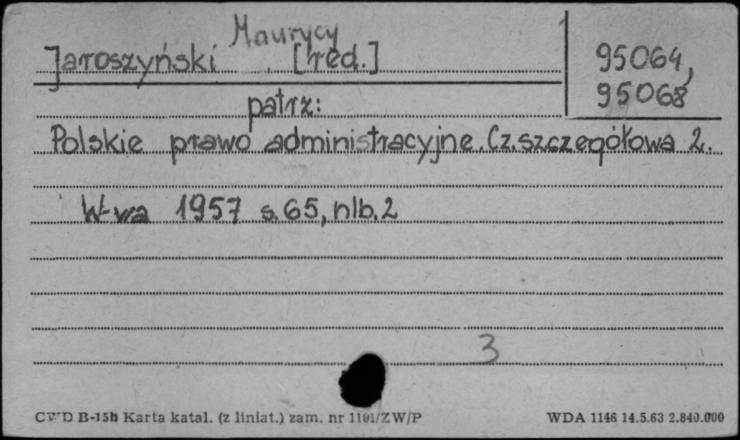 Maurycy
Jaroszyński [red.]
95064,
95068
patrz:
Polskie prawo administracyjne. Cz. szczegółowa 2.
W-wa 1957 s. 65, nlb. 2
3
CWD B-15b Karta katal. (z liniat.) zam. nr 1101/ZW/P
WDA 1146 14.5.63 2.840.000